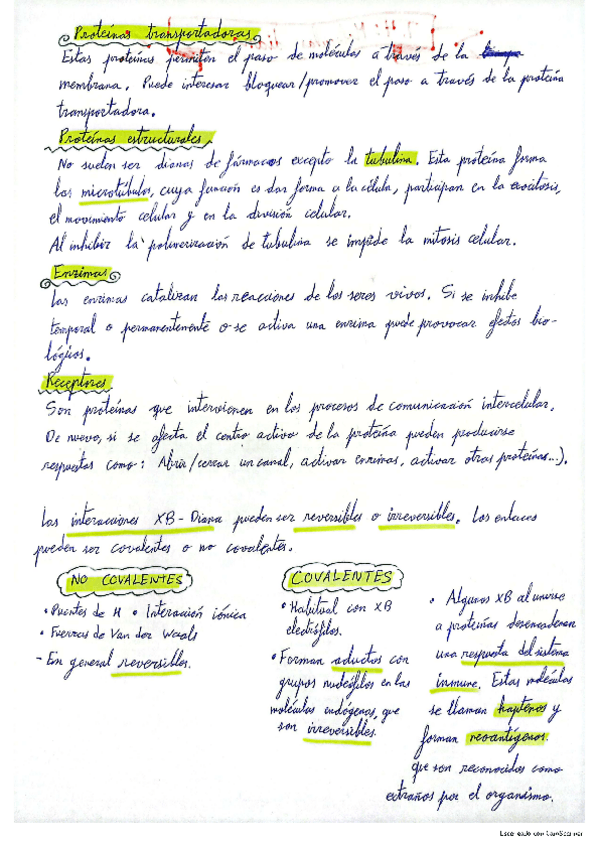 Proteínas transportadoras
Estas proteínas permiten el paso de moléculas a través de la
membrana. Puede interesar bloquear/promover el paso a través de la proteína
transportadora.
Proteínas estructurales
No suelen ser dianas de fármacos excepto la tubulina. Esta proteína forma
los microtúbulos, cuya función es dar forma a la célula, participan en la exocitosis,
el movimiento celular y en la división celular.
Al inhibir la polimerización de tubulina se impide la mitosis celular.
Enzimas
Las enzimas catalizan las reacciones de los seres vivos. Si se inhibe
temporal o permanentemente o se activa una enzima puede provocar efectos bio-
lógicos.
Receptores
Son proteínas que intervienen en los procesos de comunicación intercelular.
De nuevo, si se afecta el centro activo de la proteína pueden producirse
respuestas como: Abrir/cerrar un canal, activar enzimas, activar otras proteínas...).
Las interacciones XB - Diana pueden ser reversibles o irreversibles. Los enlaces
pueden ser covalentes o no covalentes.
NO COVALENTES
• Puentes de H • Interacción iónica
• Fuerzas de Van der Waals
- En general reversibles.
COVALENTES
• Habitual con XB
electrófilos.
• Forman aductos con
grupos nucleófilos en las
moléculas endógenas, que
son irreversibles.
• Algunos XB al unirse
a proteínas desencadenan
una respuesta del sistema
inmune. Estas moléculas
se llaman haptenos y
forman neoantígenos.
que son reconocidos como
extraños por el organismo.
Escaneado con CamScanner